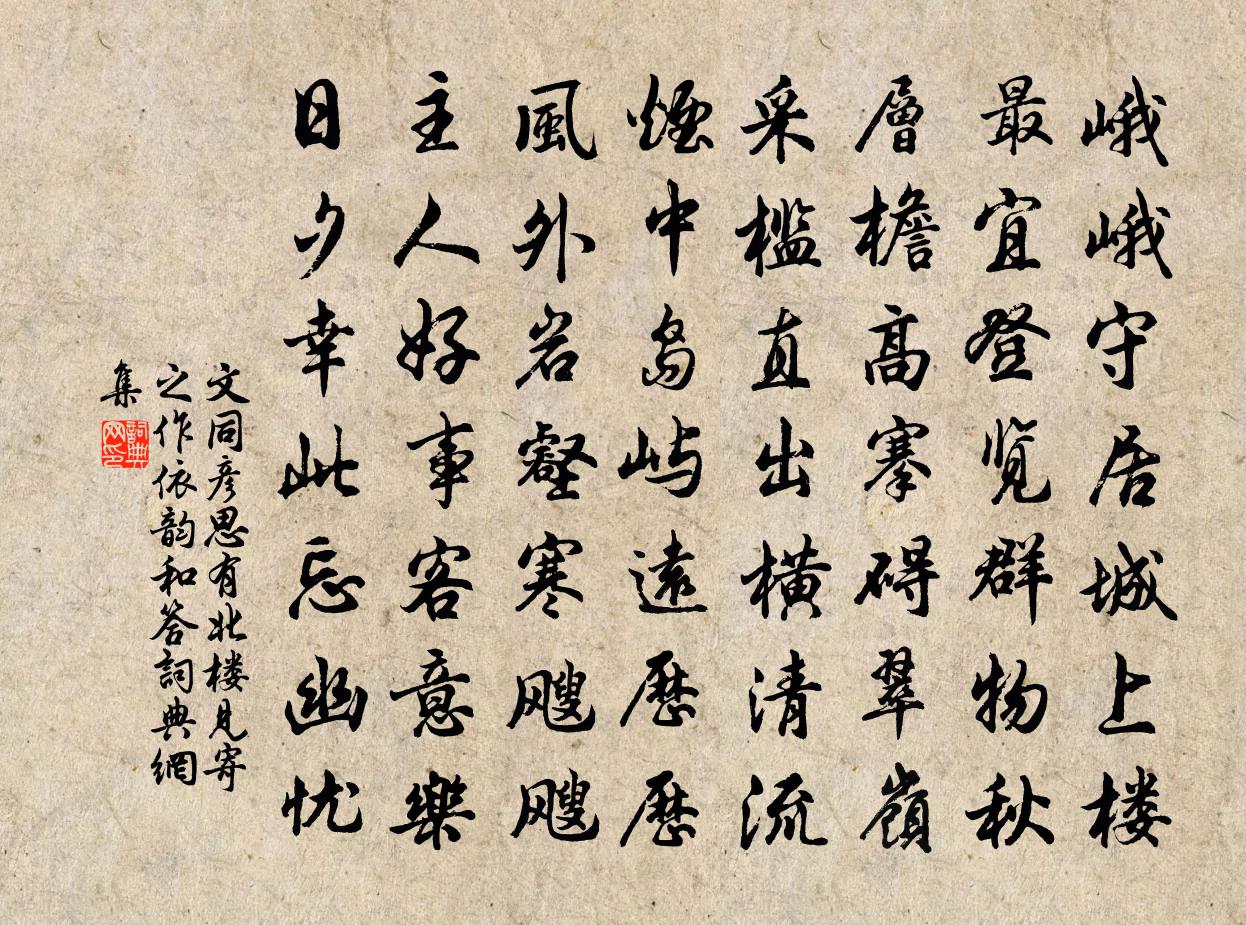 峨峨守居城上楼
最宜登览群物秋
層檐高搴碍翠嶺
采槛直出横清流
煙中島屿遠歷歷
風外岩壑寒飕飕
主人好事客意樂
日夕幸此忘幽忧
文同彦思有北楼見寄
之作依韵和答詞典網
集
詞典网印